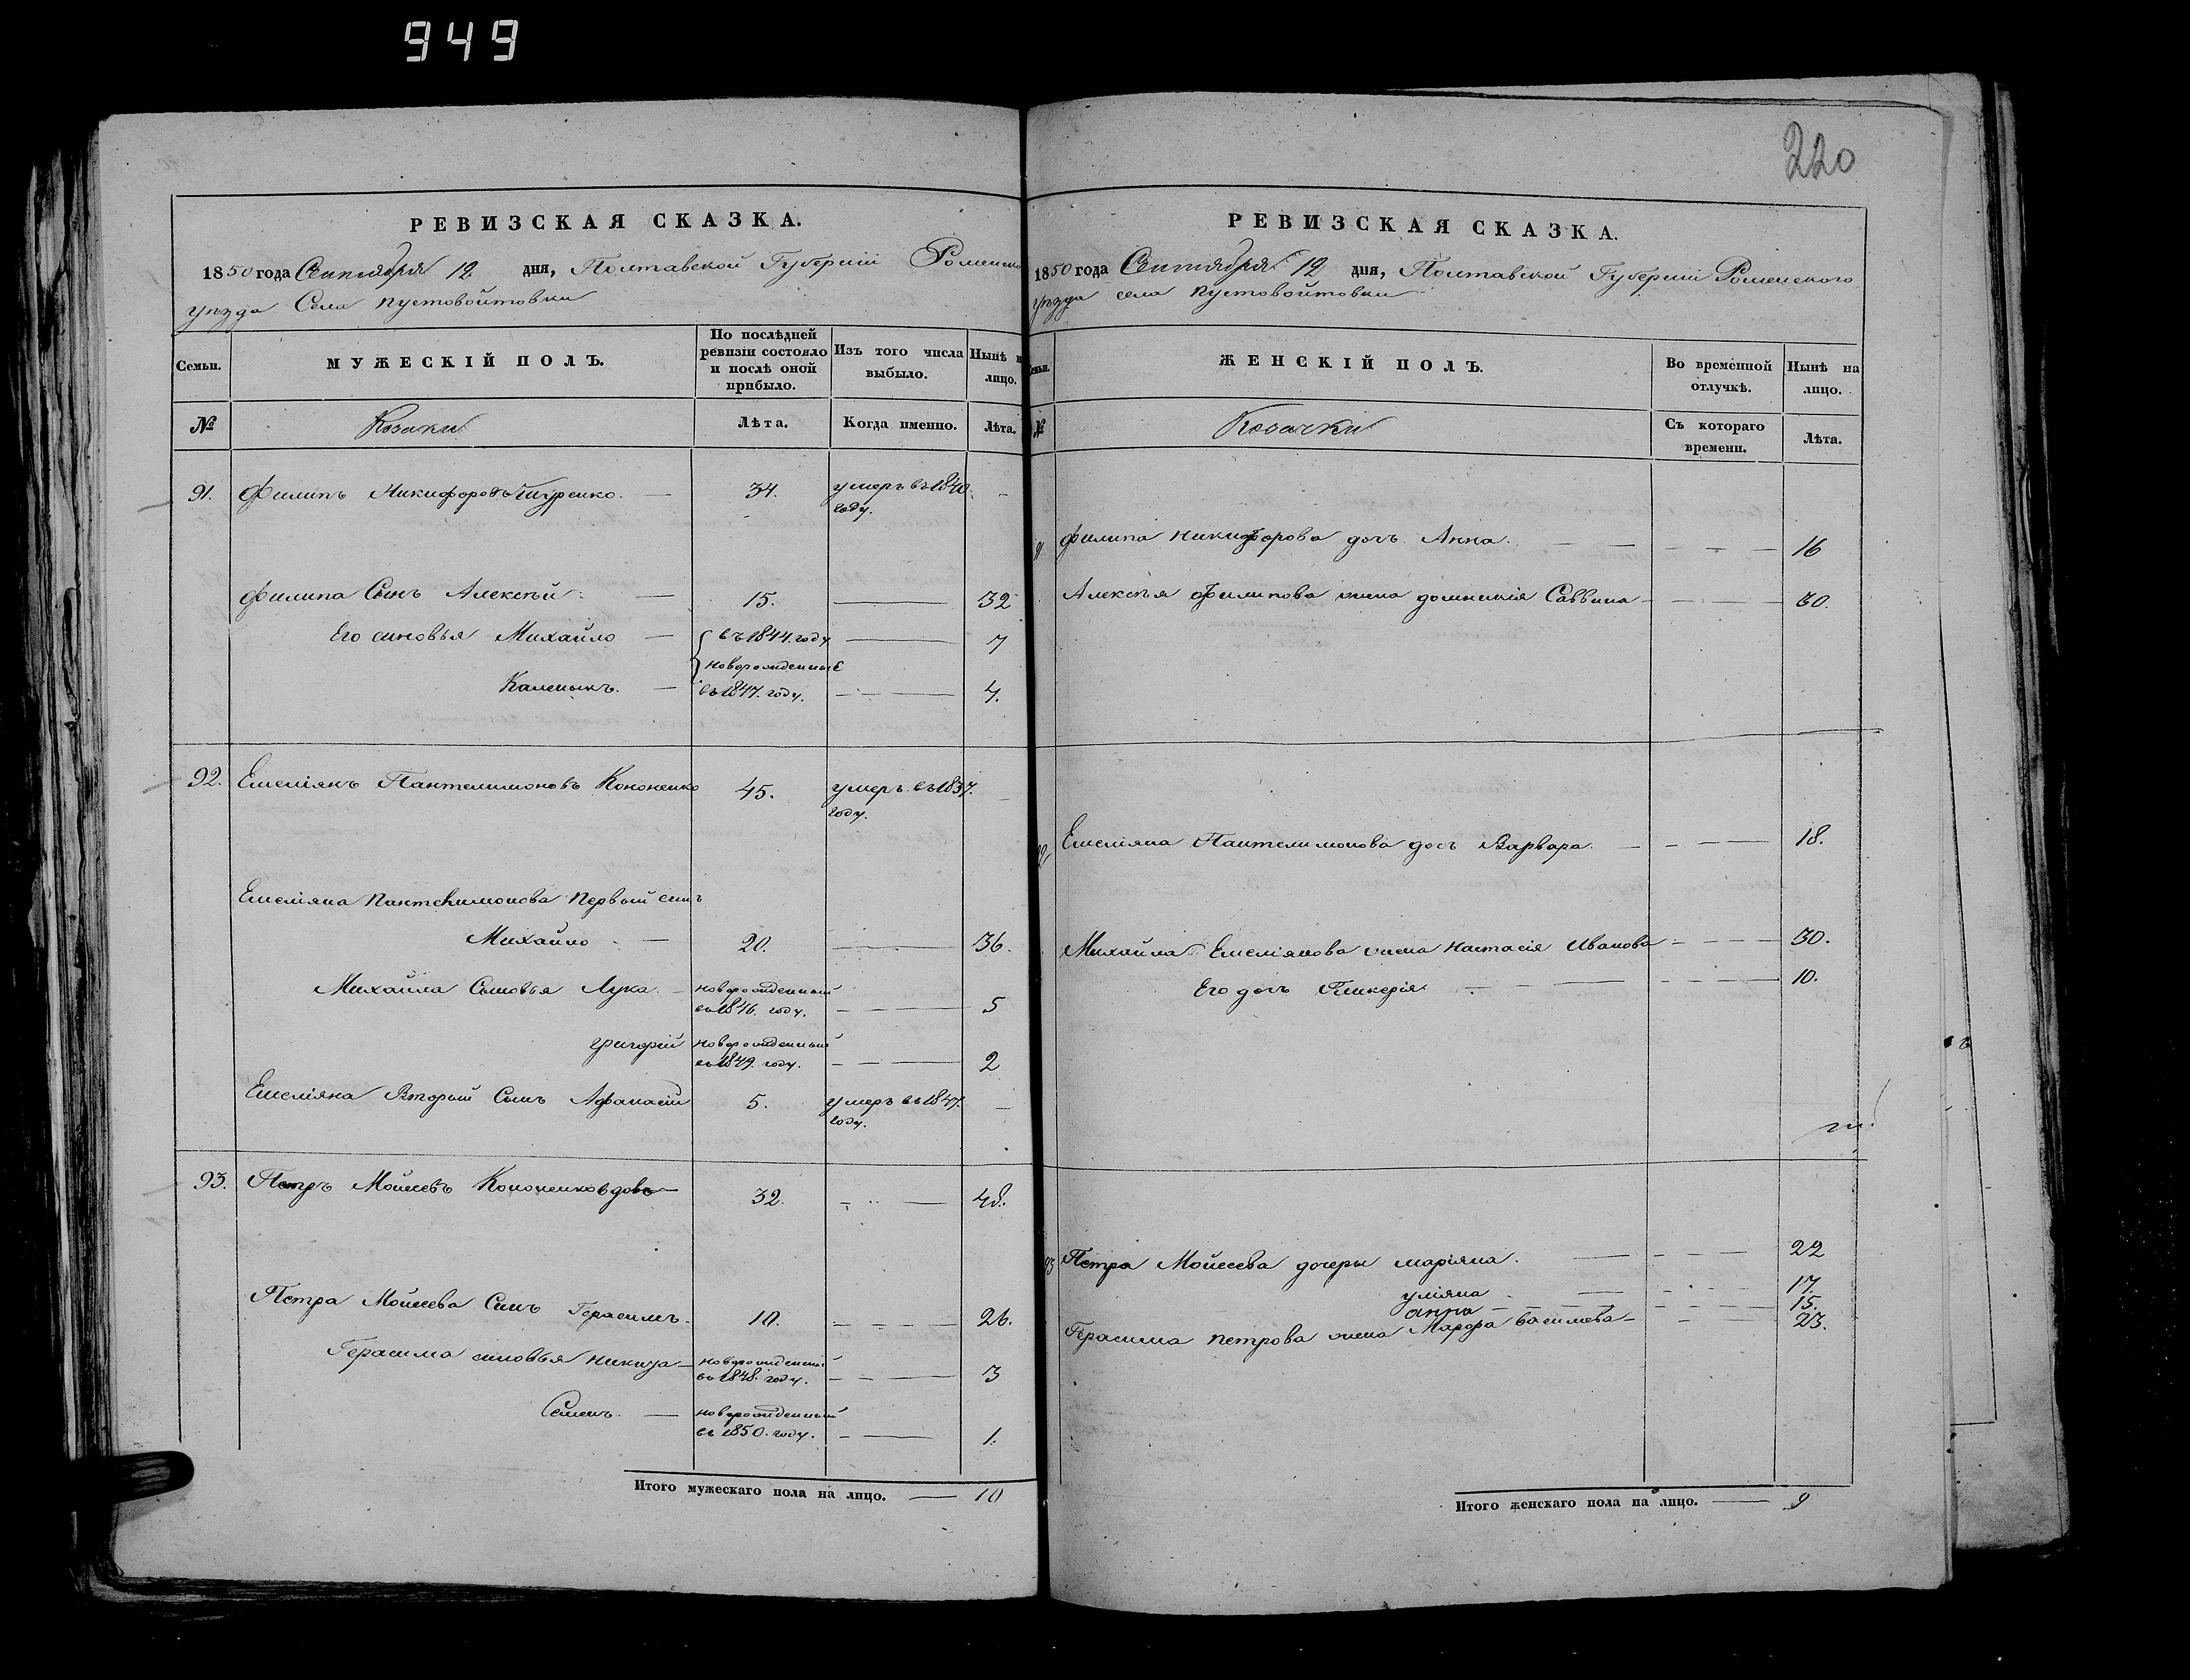 949
РЕВИЗСКАЯ СКАЗКА.
1850 года Сентября 12 дня, Полтавской Губерніи Роменско
уѣзда Села Пустовойтовки
Семьи. МУЖЕСКІЙ ПОЛЪ. По послѣдней ревизіи состояло и послѣ оной прибыло. Изъ того числа выбыло. Нынѣ н лицо.
№ Козаки Лѣта. Когда именно. Лѣта.
91. Филипъ Никифоровъ 34. умеръ въ 1840.
году.
Филипа Сынъ Алексѣй 15. 32
Его синовья Михайло въ 1844. году 7
новорожденные
Каленикъ. въ 1847. году. 4.
92. Емеліянъ Пантелимоновъ Кононенко 45. умеръ въ 1837.
году.
Емеліяна Пантелимонова Первый синъ
Михайло 20. 36.
Михайла Сыновья Лука новорожденный
въ 1846. году. 5
григорій новорожденный
въ 1849. году. 2
Емеліяна Вторый Сынъ Афанасій 5. умеръ въ 1847.
году.
93. Петръ Моисеевъ Кононенко вдовъ 32. 48.
Петра Моисеева Синъ Герасимъ 10. 26.
Герасима синовья никита новорожденный
въ 1848. году. 3
Семенъ новорожденный
въ 1850. году. 1.
Итого мужескаго пола на лицо. 10
220
РЕВИЗСКАЯ СКАЗКА.
1850 года Сентября 12 дня, Полтавской Губерніи Роменского
уѣзда села Пустовойтовки
ЖЕНСКІЙ ПОЛЪ. Во временной отлучкѣ. Нынѣ на лицо.
№ Козачки Съ котораго времени. Лѣта.
Филипа Никифорова дочь Анна. 16
Алексѣя Филипова жена домникія Саввина 30.
Емеліяна Пантелимонова дочь Варвара. 18.
Михайла Емеліянова жена настасія Иванова 30.
Его дочь Гликерія 10.
93 Петра Моисеева дочеры маріяна. 22
уліяна 17.
анна 15.
Герасима петрова жена Марфа василева 23.
Итого женскаго пола на лицо. 9